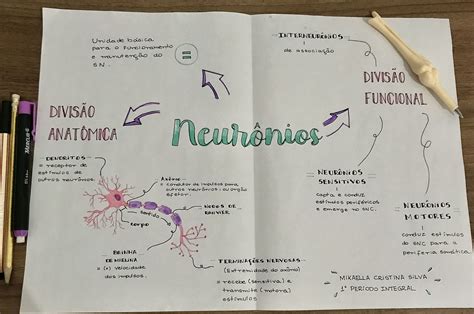 Unidade básica
para o funcionamento
e manutenção do
SN.
=
INTERNEURÔNIOS
= de associação
DIVISÃO
ANATÔMICA
Neurônios
DIVISÃO
FUNCIONAL
DENDRITOS
= receptor de
estímulos de
outros neurônios.
Axônio
= condutor de impulsos para
outros neurônios ou orgão
efetor.
NODOS DE
RANVIER
sentido
corpo
BAINHA
DE MIELINA
= (+) velocidade
dos impulsos.
TERMINAÇÕES NERVOSAS
(Extremidade do axônio)
= recebe (sensitiva) e
transmite (motora)
estímulos
NEURÔNIOS
SENSITIVOS
= capta e conduz
estímulos periféricos
e emerge no SNC.
NEURÔNIOS
MOTORES
= conduz estímulos
do SNC para a
periferia somática
MIKAELLA CRISTINA SILVA
1º PERÍODO INTEGRAL